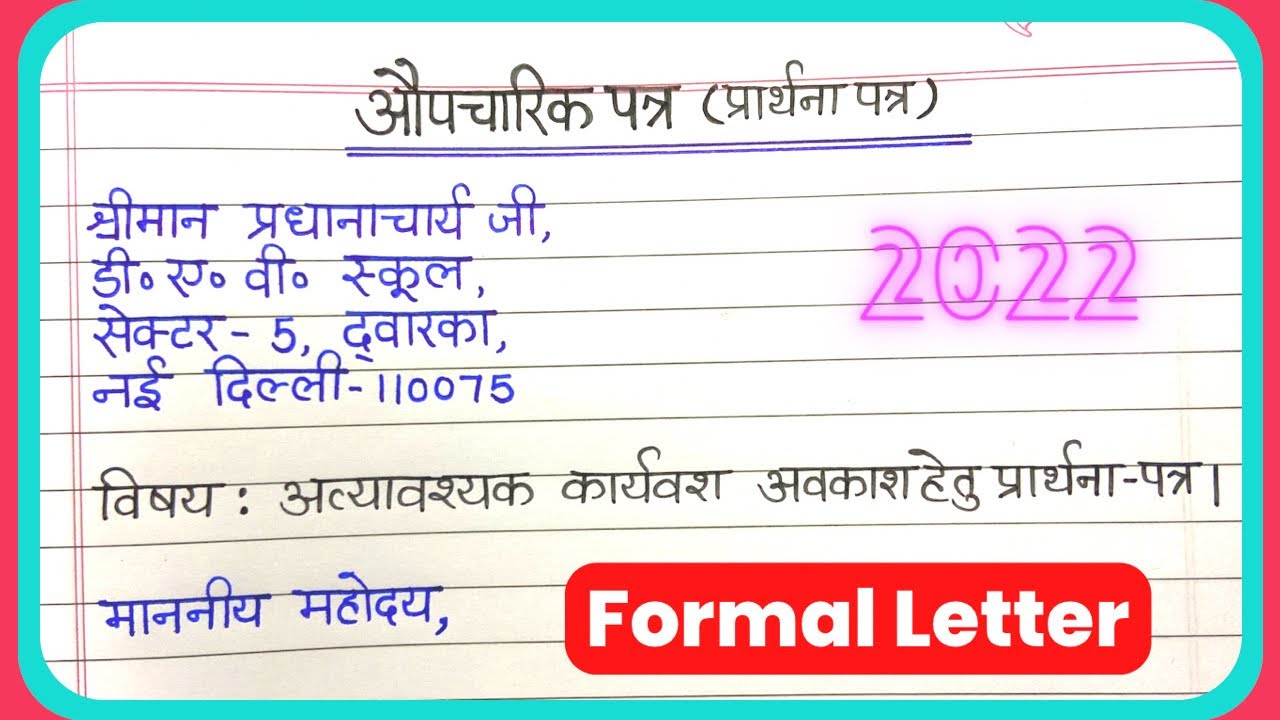 औपचारिक पत्र (प्रार्थना पत्र)
श्रीमान प्रधानाचार्य जी,
डी॰ ए॰ वी॰ स्कूल,
सेक्टर - 5, द्वारका,
नई दिल्ली-110075
2022
विषय : अत्यावश्यक कार्यवश अवकाश हेतु प्रार्थना-पत्र।
माननीय महोदय,
Formal Letter